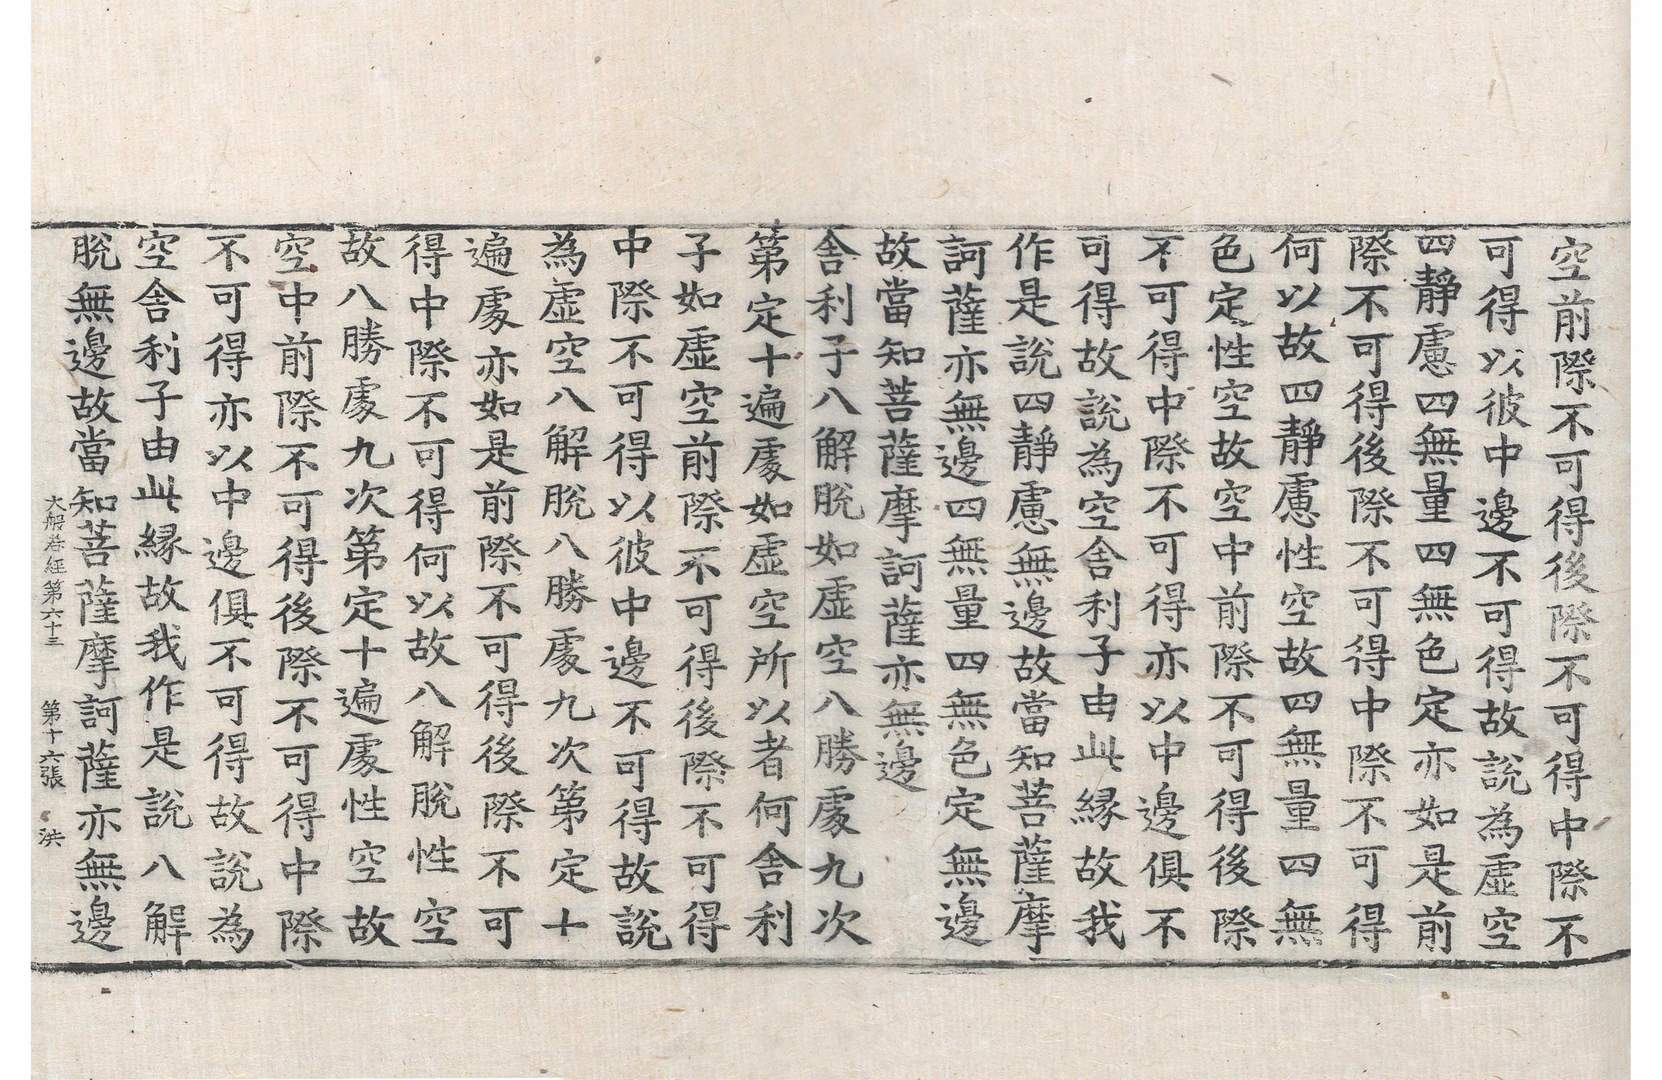 空前際不可得後際不可得中際不
可得以彼中邊不可得故說為虛空
四靜慮四無量四無色定亦如是前
際不可得後際不可得中際不可得
何以故四靜慮性空故四無量四無
色定性空故空中前際不可得後際
不可得中際不可得亦以中邊俱不
可得故說為空舍利子由此緣故我
作是說四靜慮無邊故當知菩薩摩
訶薩亦無邊四無量四無色定無邊
故當知菩薩摩訶薩亦無邊
舍利子八解脫如虛空八勝處九次
第定十遍處如虛空所以者何舍利
子如虛空前際不可得後際不可得
中際不可得以彼中邊不可得故說
為虛空八解脫八勝處九次第定十
遍處亦如是前際不可得後際不可
得中際不可得何以故八解脫性空
故八勝處九次第定十遍處性空故
空中前際不可得後際不可得中際
不可得亦以中邊俱不可得故說為
空舍利子由此緣故我作是說八解
脫無邊故當知菩薩摩訶薩亦無邊
大般若經第六十三 第十六張 洪